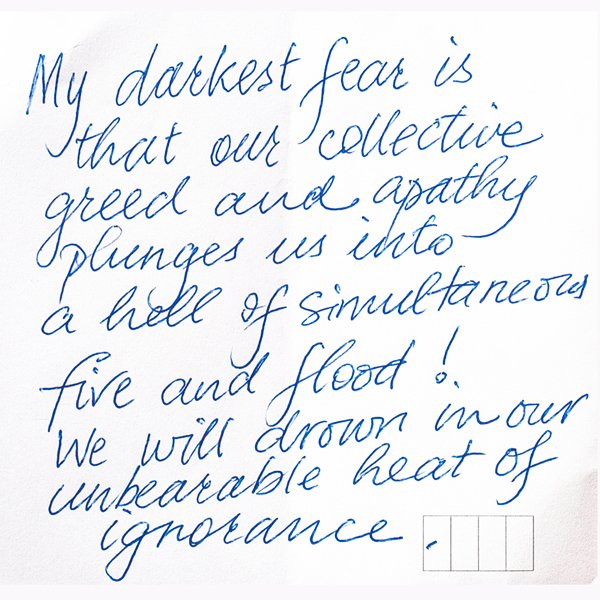 My darkest fear is
that our collective
greed and apathy
plunges us into
a hell of simultaneous
fire and flood!
We will drown in our
unbearable heat of
ignorance.